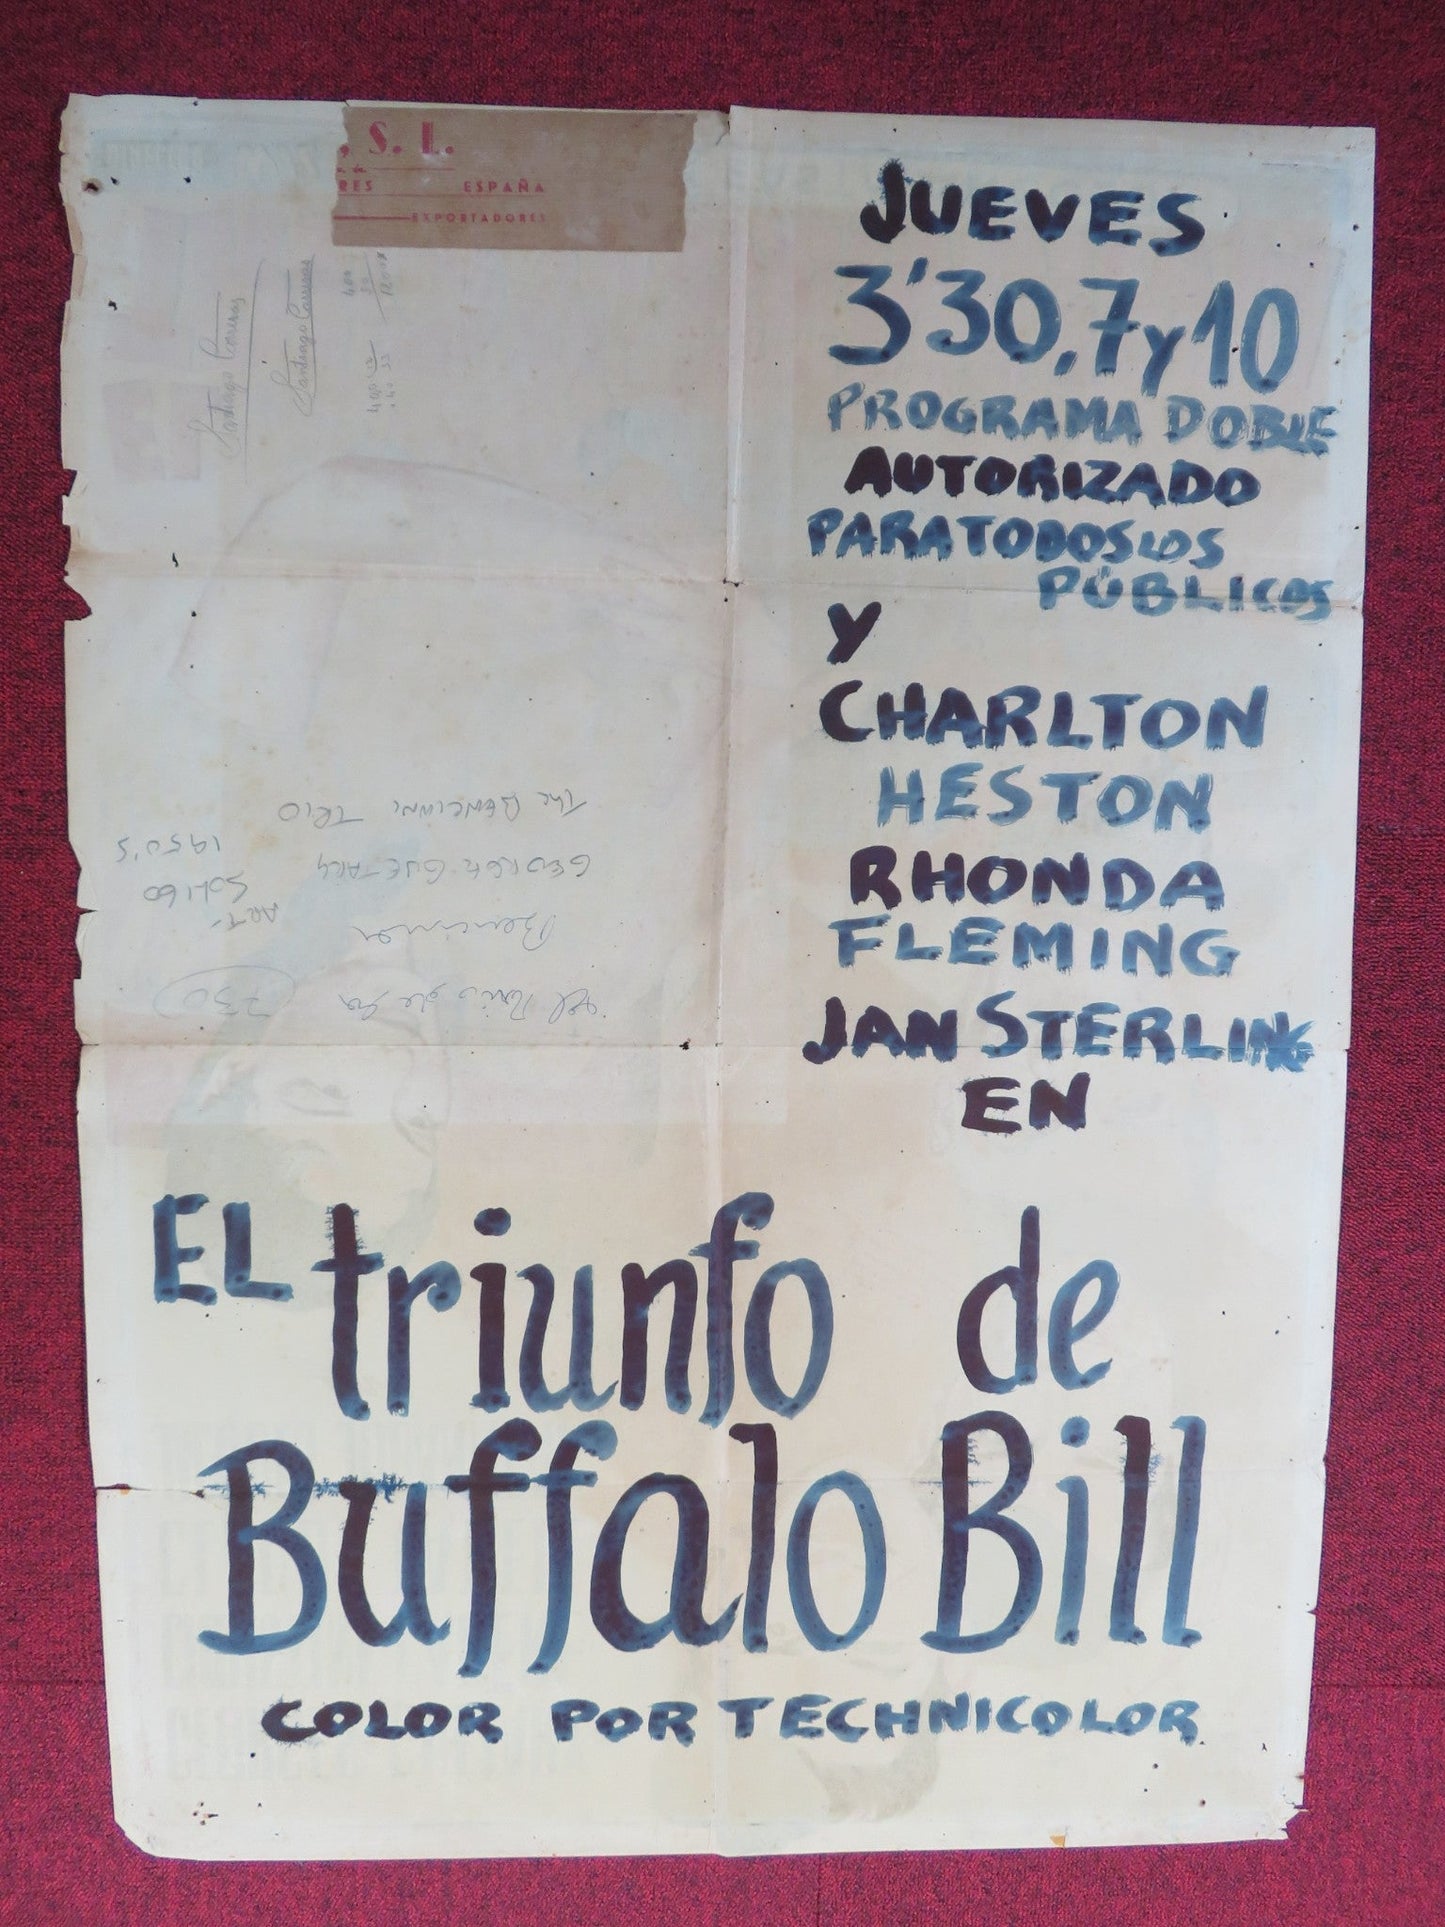 , S. L.
RES ESPAÑA
EXPORTADORES
JUEVES
3'30, 7 y 10
PROGRAMA DOBLE
AUTORIZADO
PARA TODOS LOS
PÚBLICOS
Y
CHARLTON
HESTON
RHONDA
FLEMING
JAN STERLING
EN
EL triunfo de
Buffalo Bill
COLOR POR TECHNICOLOR
Santiago Carreras
Santiago Carreras
730
ART.
SOLIGO
1950'S
GEORGE GUETARY
THE BENCINNI TRIO